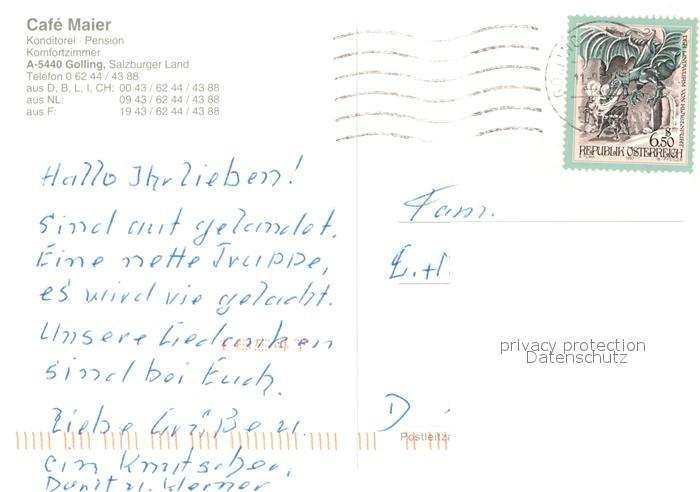 Café Maier
Konditorei · Pension
Komfortzimmer
A-5440 Golling, Salzburger Land
Telefon 0 62 44 / 43 88
aus D, B, L, I, CH: 00 43 / 62 44 / 43 88
aus NL: 09 43 / 62 44 / 43 88
aus F: 19 43 / 62 44 / 43 88
DER LINDWURM VON KLAGENFURT
S
6.50
REPUBLIK ÖSTERREICH
1997
Hallo Ihr lieben!
Sind gut gelandet.
Eine nette Truppe,
es wird vie gelacht.
Unsere Gedanken
sind bei Euch.
Liebe Grüße u.
ein Knutscher,
u. Werner
Fam.
E. + H.
D
Postleitza
privacy protection
Datenschutz